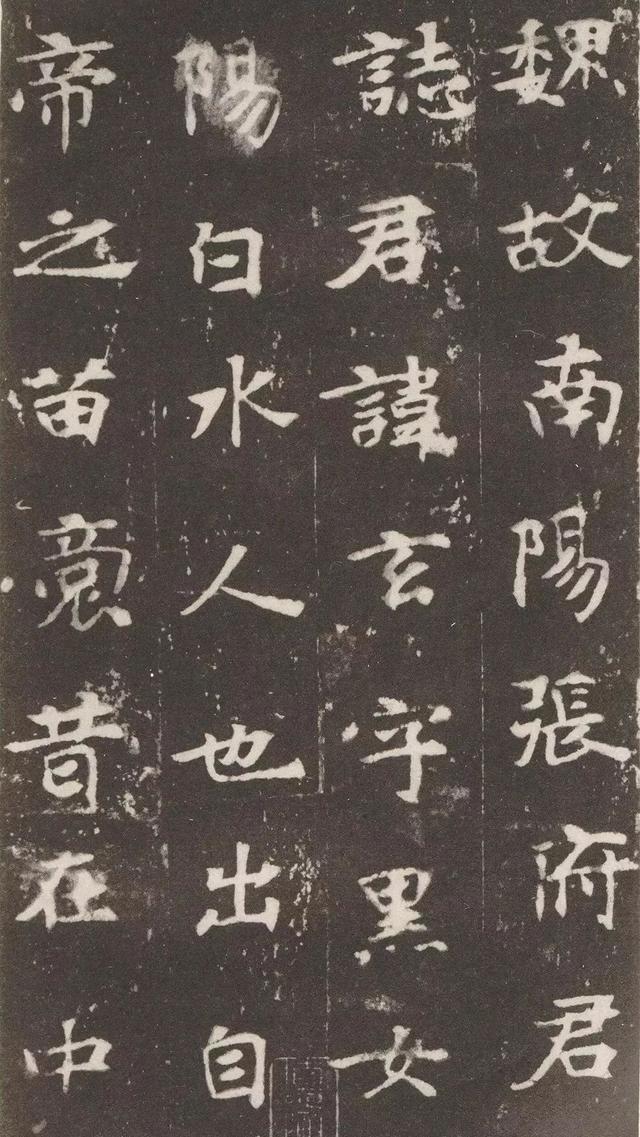 魏故南陽張府君
誌君諱玄字黑女南
陽白水人也出自
帝之苗裔昔在中